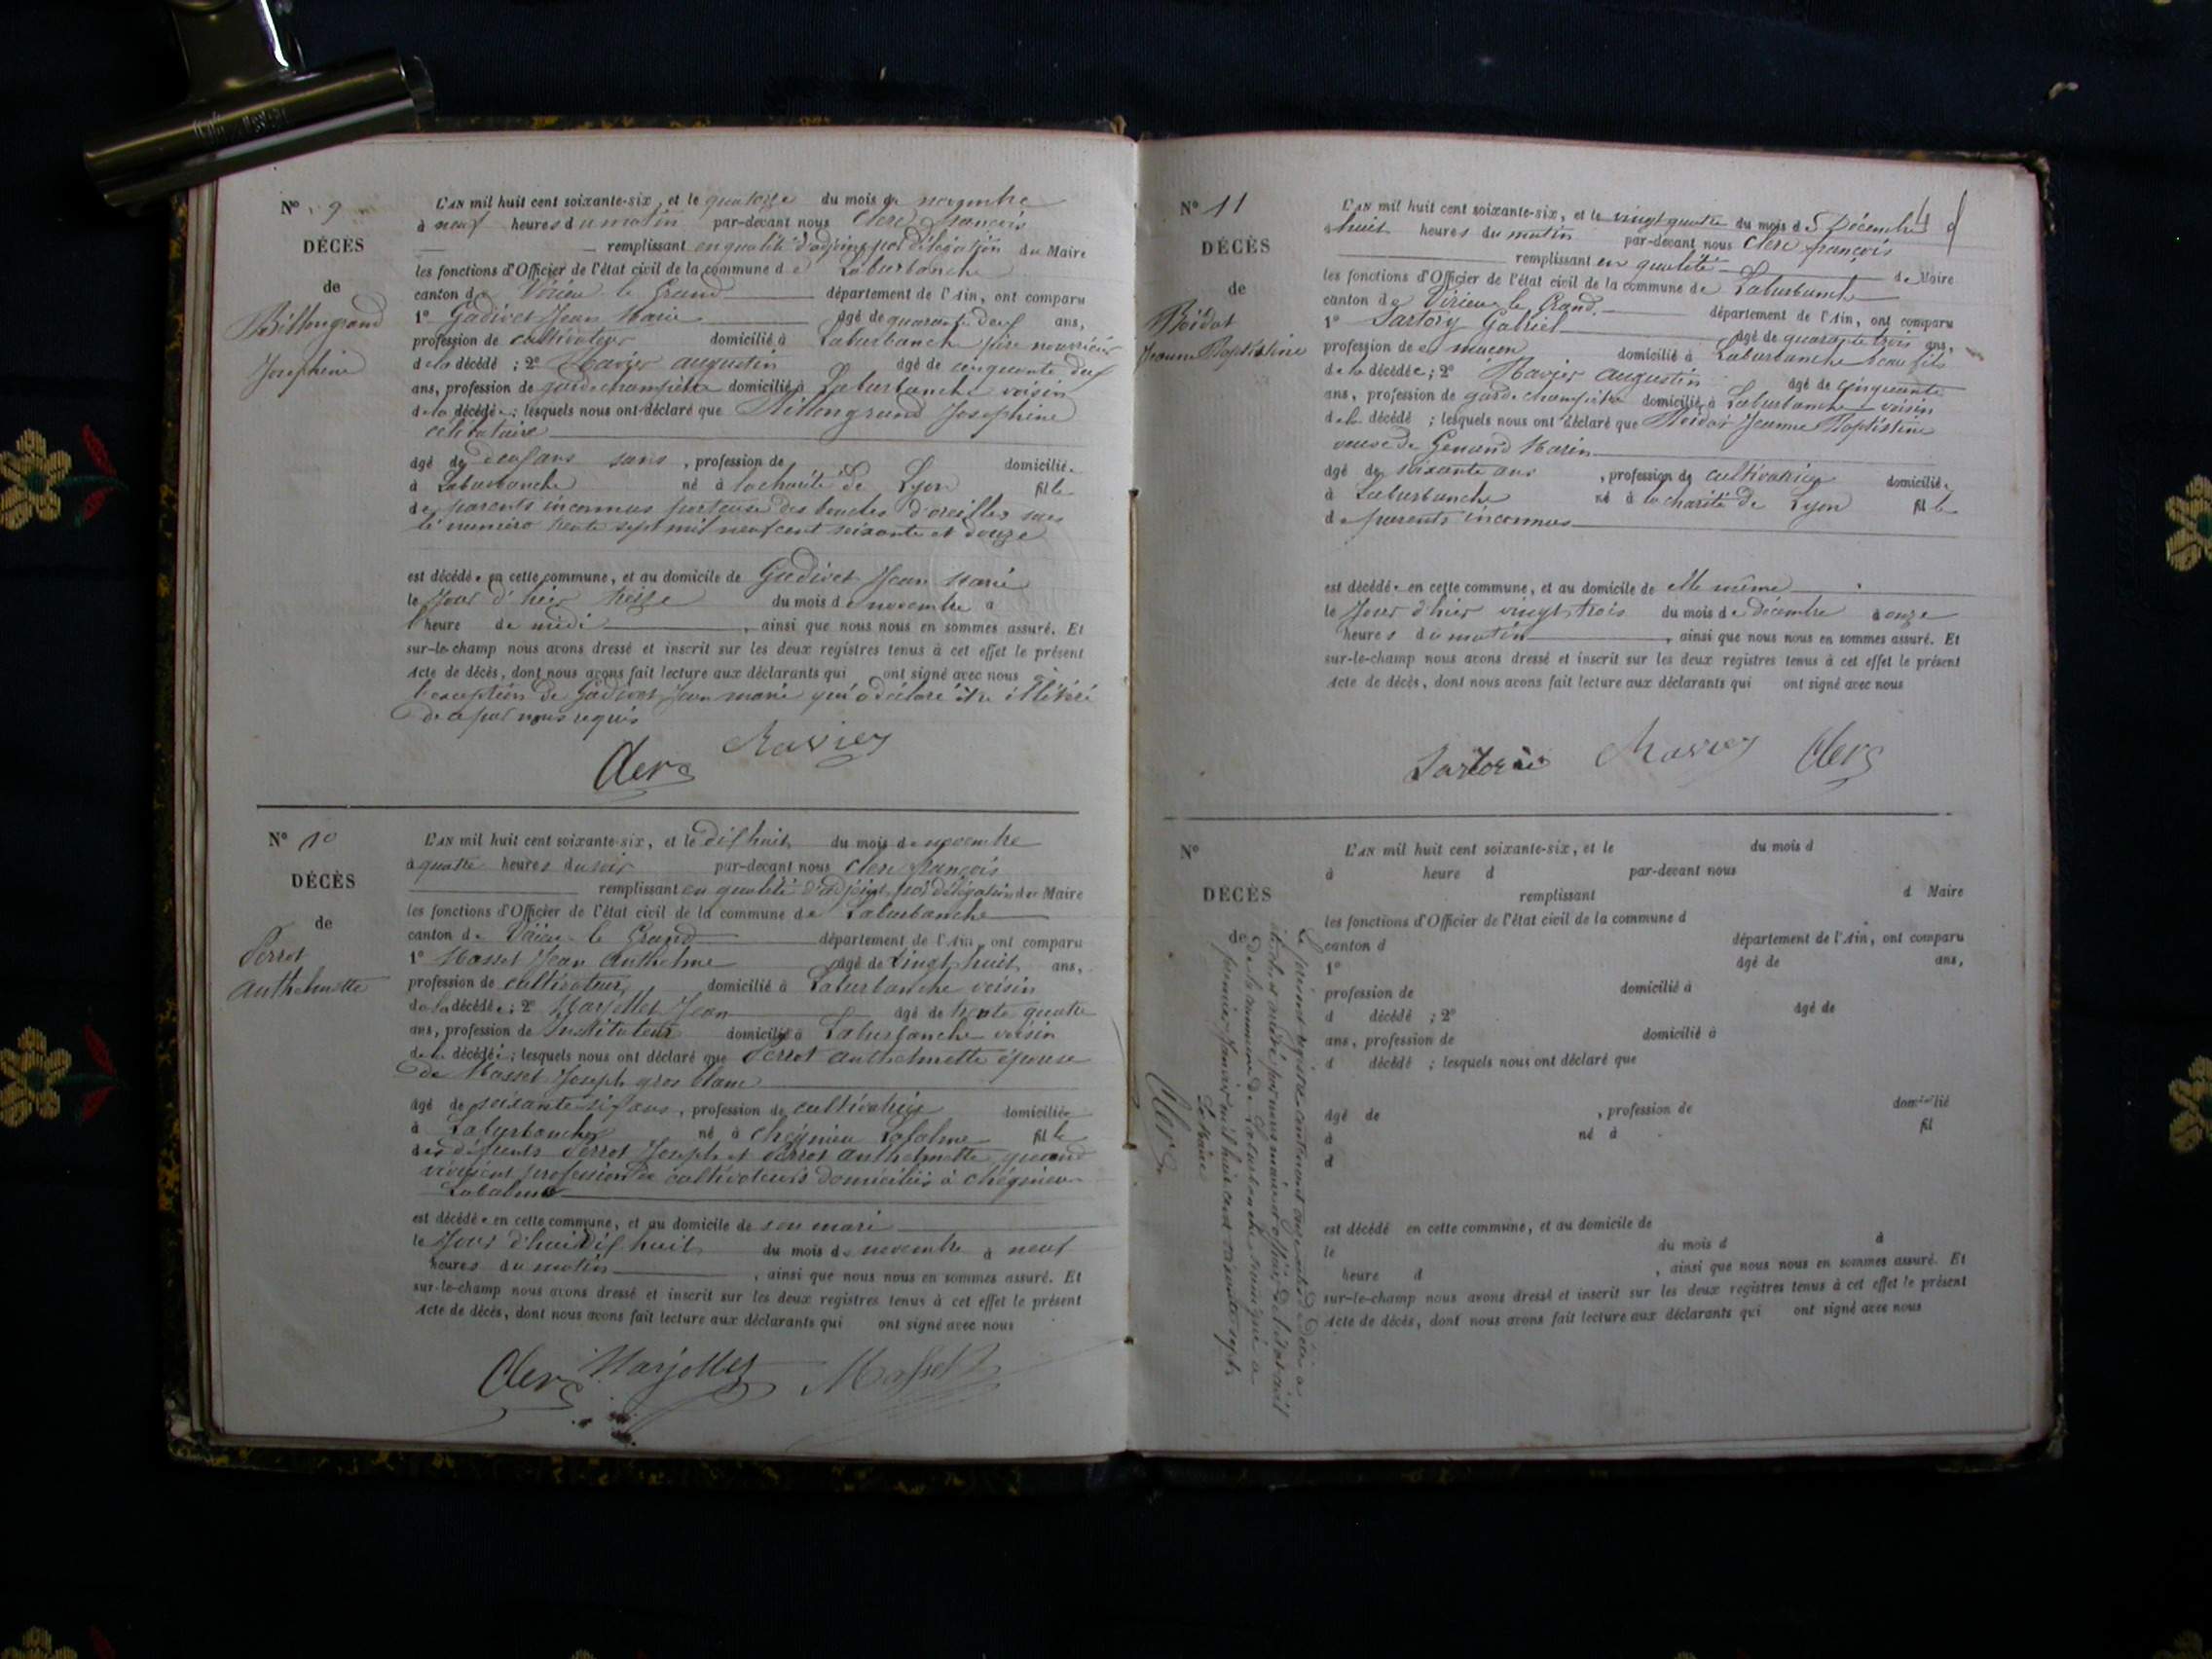 N° 9
DÉCÈS
de
Billongrand
Josephine
L'AN mil huit cent soixante-six, et le quatorze du mois de novembre
à neuf heures du matin par-devant nous Clerc françois
remplissant en qualité d'adjoint par délégation du Maire
les fonctions d'Officier de l'état civil de la commune de Laburbanche
canton de Virieu le Grand département de l'Ain, ont comparu
1° Gadivet Jean Marie âgé de quarante deux ans,
profession de cultivateur domicilié à Laburbanche père nourricier
de la décédé ; 2° Ravier augustin âgé de cinquante deux
ans, profession de gardechampêtre domicilié à Laburbanche voisin
de la décédée ; lesquels nous ont déclaré que Billongrand Josephine
célibataire
âgé de deux ans sans , profession de domiciliée
à Laburbanche né à la charité de Lyon fille
de parents inconnus porteuse des boucles d'oreilles sous
le numéro trente sept mil neuf cent soixante et douze
est décédée en cette commune, et au domicile de Gadivet Jean Marie
le Jour d'hier treize du mois de novembre a
l'heure de midi , ainsi que nous nous en sommes assuré. Et
sur-le-champ nous avons dressé et inscrit sur les deux registres tenus à cet effet le présent
Acte de décès, dont nous avons fait lecture aux déclarants qui ont signé avec nous à
l'exception de Gadivet Jean marie qui a déclaré être illitéré
de ce par nous requis
Clerc Ravier
N° 10
DÉCÈS
de
Perrot
anthelmette
L'AN mil huit cent soixante-six, et le dix huit du mois de novembre
à quatre heures du soir par-devant nous Clerc françois
remplissant en qualité d'adjoint par délégation du Maire
les fonctions d'Officier de l'état civil de la commune de Laburbanche
canton de Virieu le Grand département de l'Ain, ont comparu
1° Masset Jean Anthelme âgé de Vingt huit ans,
profession de cultivateur domicilié à Laburbanche voisin
de la décédée ; 2° Marjollet Jean âgé de trente quatre
ans, profession de Instituteur domicilié à Laburbanche voisin
de la décédée ; lesquels nous ont déclaré que Perrot anthelmette épouse
de Masset Joseph gros blanc
âgé de soixante six ans , profession de cultivatrice domiciliée
à Laburbanche né à cheignieu Labalme fille
des défunts Perrot Joseph et Perrot anthelmette quand
vivaient profession de cultivateurs domiciliés à chégnieu
Labalme
est décédée en cette commune, et au domicile de son mari
le Jour d'hui Dix huit du mois de novembre à neuf
heures du matin , ainsi que nous nous en sommes assuré. Et
sur-le-champ nous avons dressé et inscrit sur les deux registres tenus à cet effet le présent
Acte de décès, dont nous avons fait lecture aux déclarants qui ont signé avec nous
Clerc Marjollet Masset
N° 11
DÉCÈS
de
Roidot
Jeanne Baptistine
4
L'AN mil huit cent soixante-six, et le vingt quatre du mois d Décembre
à huit heures du matin par-devant nous Clerc françois
remplissant en qualité de Maire
les fonctions d'Officier de l'état civil de la commune de Laburbanche
canton de Virieu le Grand département de l'Ain, ont comparu
1° Sartory Gabriel âgé de quarante trois ans,
profession de maçon domicilié à Laburbanche beau fils
de la décédée ; 2° Ravier augustin âgé de cinquante
ans, profession de garde champêtre domicilié à Laburbanche voisin
de la décédé ; lesquels nous ont déclaré que Roidot Jeanne Baptistine
veuve de Genand Marin
âgé de soixante ans , profession de cultivatrice domiciliée
à Laburbanche né à la charité de Lyon fille
de parents inconnus
est décédée en cette commune, et au domicile de elle même
le Jour d'hier vingt trois du mois de décembre à onze
heures du matin , ainsi que nous nous en sommes assuré. Et
sur-le-champ nous avons dressé et inscrit sur les deux registres tenus à cet effet le présent
Acte de décès, dont nous avons fait lecture aux déclarants qui ont signé avec nous
Sartori Ravier Clerc
N°
DÉCÈS
de
L'AN mil huit cent soixante-six, et le du mois d
à heure d par-devant nous
remplissant d Maire
les fonctions d'Officier de l'état civil de la commune d
canton d département de l'Ain, ont comparu
1° âgé de ans,
profession de domicilié à
d décédé ; 2° âgé de
ans, profession de domicilié à
d décédé ; lesquels nous ont déclaré que
âgé de , profession de domicilié
à né à fil
d
est décédé en cette commune, et au domicile de
le du mois d à
heure d , ainsi que nous nous en sommes assuré. Et
sur-le-champ nous avons dressé et inscrit sur les deux registres tenus à cet effet le présent
Acte de décès, dont nous avons fait lecture aux déclarants qui ont signé avec nous
Le présent registre contenant onze actes de décès a
été clos et arrêté par nous maire et officier de l'état civil
de la commune de Laburbanche soussigné ce
premier Janvier mil huit cent soixante sept
Le Maire
Clerc